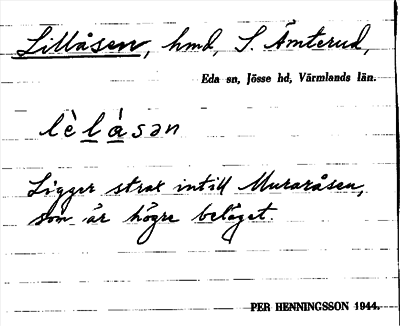 Lillåsen, hmd, S. Ämterud,
Eda sn, Jösse hd, Värmlands län.
lèlåsən
Ligger strax intill Muraråsen,
som är högre beläget.
PER HENNINGSSON 1944.